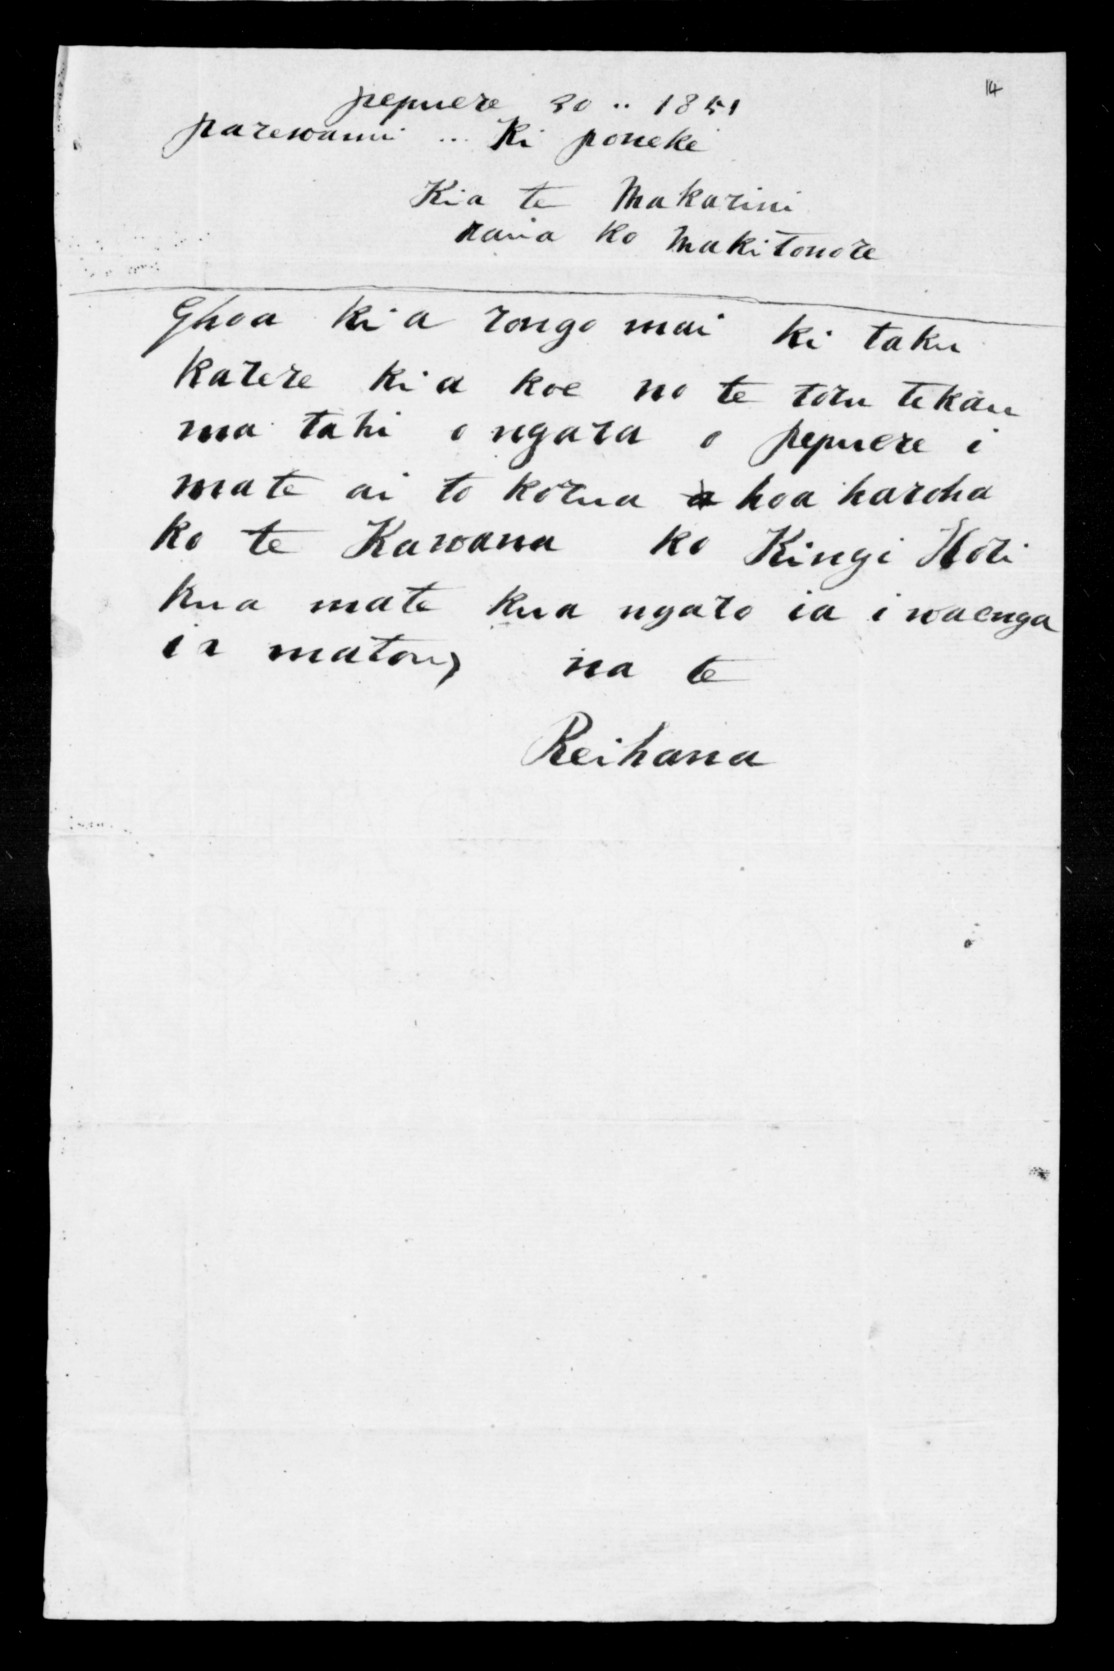 14
pepuere 30 .. 1851
parewanui ... Ki poneke
Kia te Makarini
raua ko Makitonore
Ehoa kia rongo mai ki taku
karere ki a koe no te toru tekau
ma tahi o ngara o pepuere i
mate ai to korua hoa haroha
ko te Kawana ko Kingi Hori
kua mate kua ngaro ia i waenga
i a matou, na te
Reihana